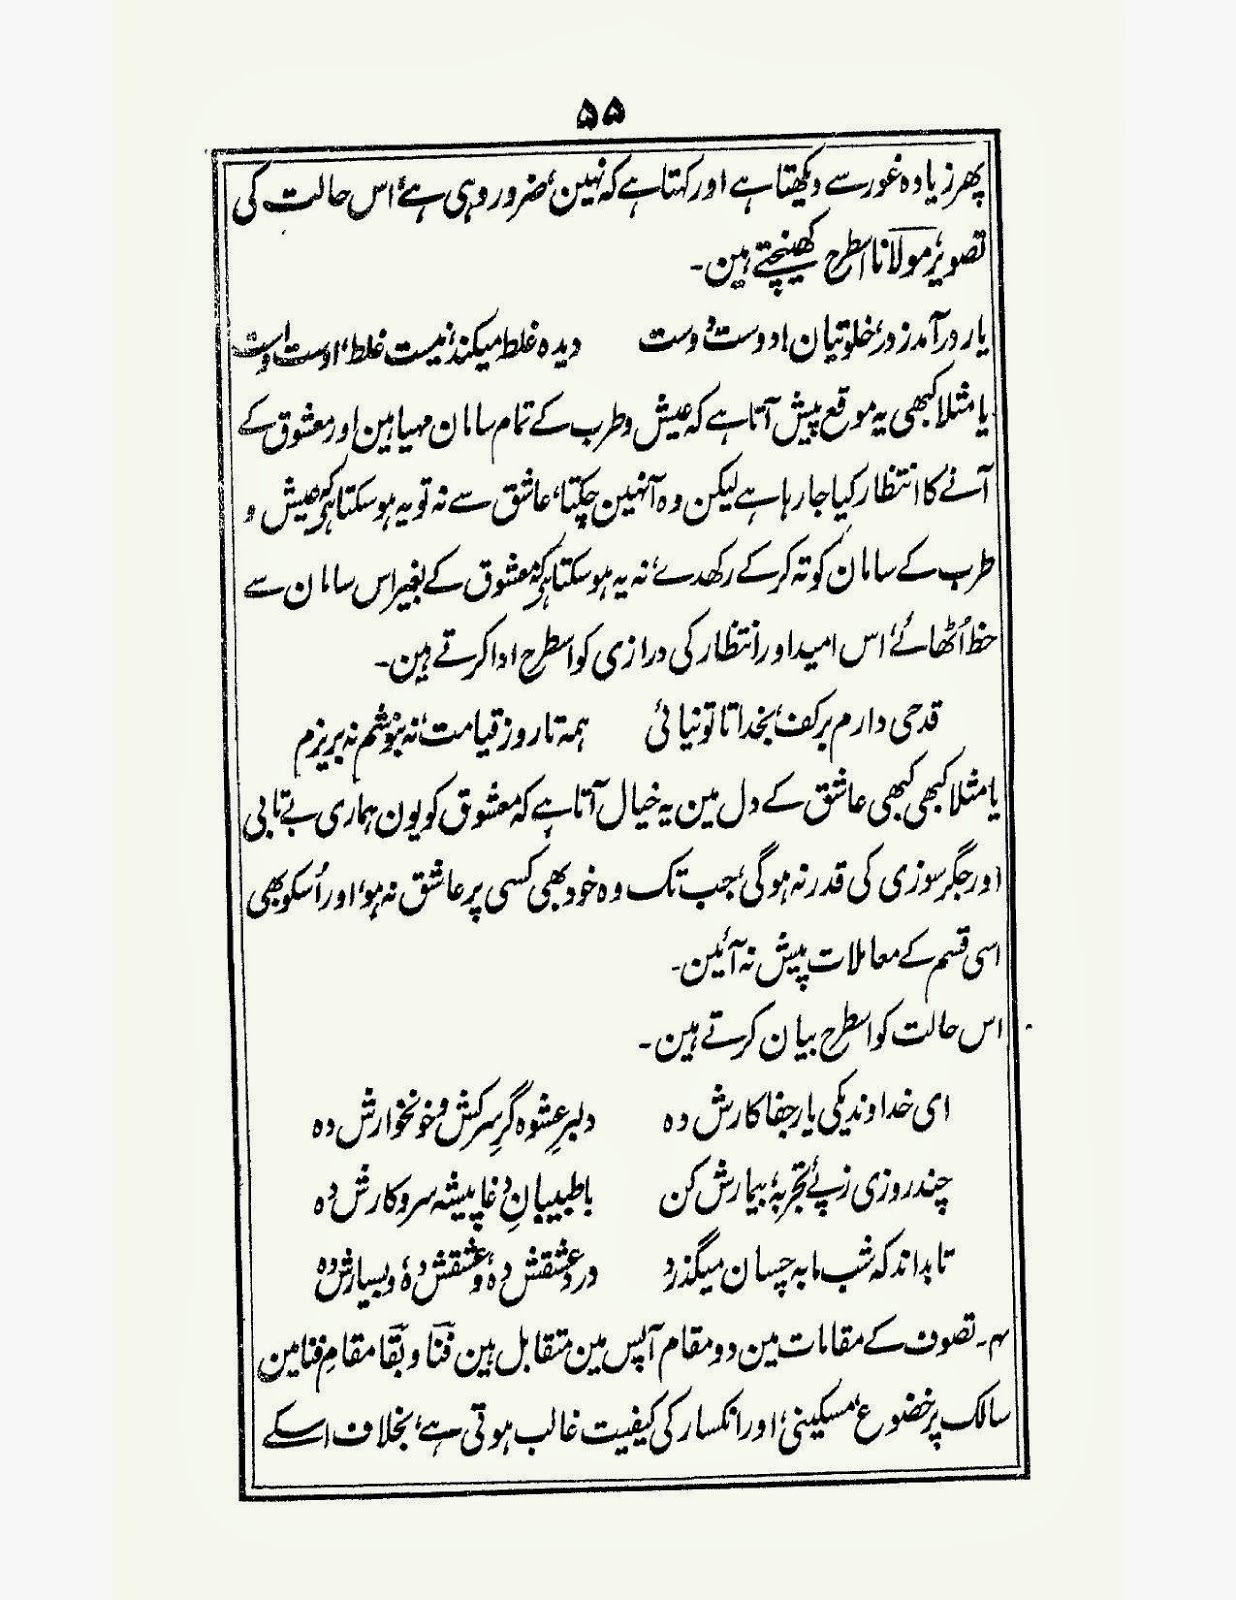 ۵۵
پھر زیادہ غور سے دیکھتا ہے اور کہتا ہے کہ نہین، ضرور وہی ہے، اس حالت کی
تصویر، مولانا اسطرح کھینچتے ہین۔
یار در آمد ز در، خلوتیان! دوست، دوست دیدہ غلط میکند، نیست غلط، اوست اوست
یا مثلا کبھی یہ موقع پیش آتا ہے کہ عیش و طرب کے تمام سامان مہیا ہین اور معشوق کے
آنے کا انتظار کیا جا رہا ہے لیکن وہ آنہین چکتا، عاشق سے نہ تو یہ ہو سکتا ہی کہ عیش و
طرب کے سامان کو تہ کر کے رکھدے، نہ یہ ہو سکتا ہی کہ معشوق کے بغیر اس سامان سے
حظ اُٹھائے، اس امید اور انتظار کی درازی کو اسطرح ادا کرتے ہین۔
قدحی دارم برکف، بخدا تا تو نیائی ہمہ تا روز قیامت، نہ بنوشم نہ بریزم
یا مثلا کبھی کبھی عاشق کے دل مین یہ خیال آتا ہے کہ معشوق کو یون ہماری بے تابی
اور جگر سوزی کی قدر نہ ہوگی، جب تک وہ خود بھی کسی پر عاشق نہ ہو، اور اُسکو بھی
اسی قسم کے معاملات پیش نہ آئین۔
اس حالت کو اسطرح بیان کرتے ہین۔
ای خداوند یکی یار جفا کارش دہ دلبرِ عشوہ گرِ سرکش و خونخوارش دہ
چند روزی ز پئے تجربہ، بیمارش کن با طبیبانِ دغا پیشہ سرو کارش دہ
تا بداند کہ شب ما بہ چسان میگذرد دردِ عشقش دہ، و عشقش دہ، و بسیارش دہ
۴۔ تصوف کے مقامات مین دو مقام آپس مین متقابل ہین فنا و بقا مقامِ فنا مین
سالک پر خضوع، مسکینی، اور انکسار کی کیفیت غالب ہوتی ہے، بخلاف اسکے